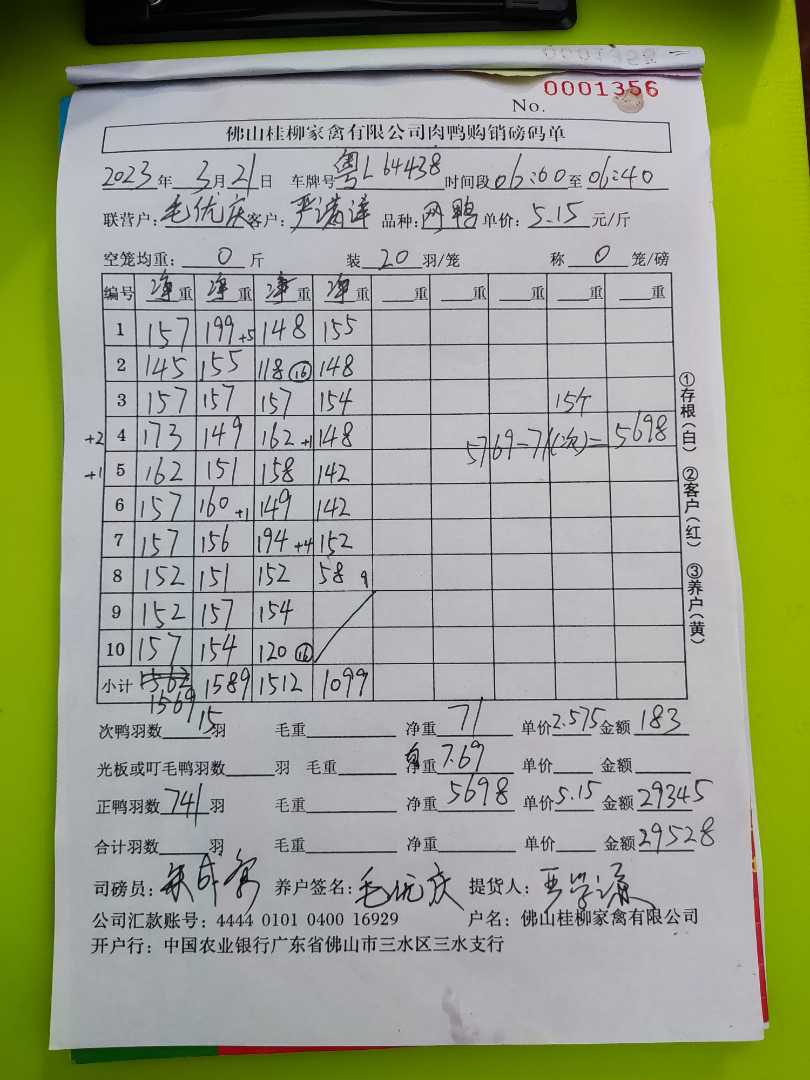 0001356
No.
佛山桂柳家禽有限公司肉鸭购销磅码单
2023年 3月21日 车牌号粤L64438 时间段06:00至06:40
联营户:毛优庆 客户: 品种:网鸭 单价:5.15元/斤
空笼均重:0斤 装20羽/笼 称0笼/磅
编号 净重 净重 净重 净重 重 重 重 重 重
1 157 199+5 148 155
2 145 155 118⑯ 148
3 157 157 157 154 15个
+2 4 173 149 162+1 148 5769-71(次)=5698
+1 5 162 151 158 142
6 157 160+1 149 142
7 157 156 194+4 152
8 152 151 152 58 9
9 152 157 154
10 157 154 120⑯
小计 1569 1589 1512 1099
次鸭羽数15羽 毛重 净重71 单价2.575 金额183
光板或叮毛鸭羽数 羽 毛重 净重7.69 单价 金额
正鸭羽数741羽 毛重 净重5698 单价5.15 金额29345
合计羽数 羽 毛重 净重 单价 金额29528
司磅员: 养户签名:毛优庆 提货人:
公司汇款账号:4444 0101 0400 16929 户名:佛山桂柳家禽有限公司
开户行:中国农业银行广东省佛山市三水区三水支行
①存根(白) ②客户(红) ③养户(黄)